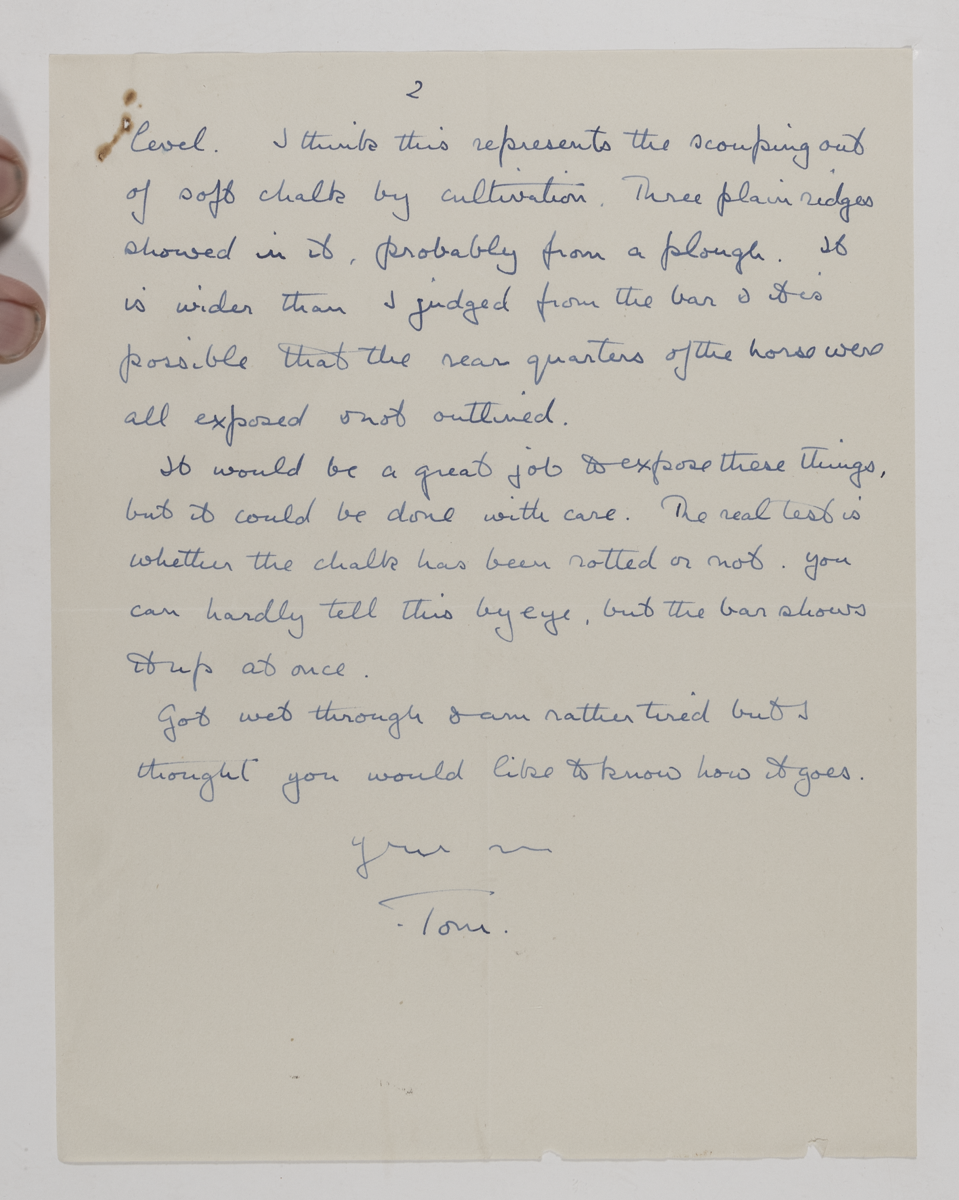 2
level. I think this represents the scouping out
of soft chalk by cultivation. Three plain ridges
showed in it, probably from a plough. It
is wider than I judged from the bar & it is
possible that the rear quarters of the horse were
all exposed & not outlined.
It would be a great job to expose these things,
but it could be done with care. The real test is
whether the chalk has been rotted or not. You
can hardly tell this by eye, but the bar shows
it up at once.
Got wet through & am rather tired but I
thought you would like to know how it goes.
Tom.